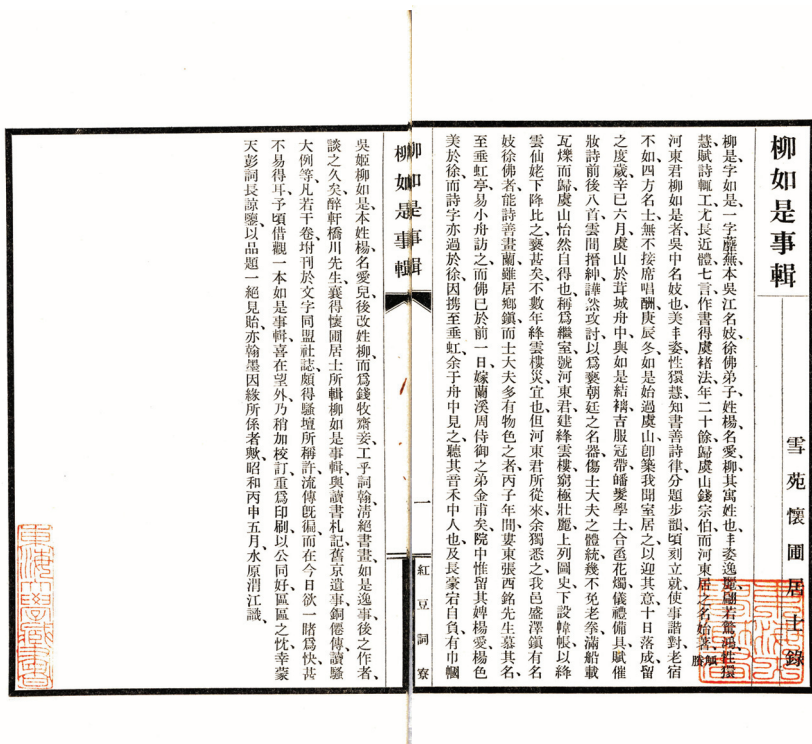 柳如是事輯
雪苑懷圃居士錄
柳是字如是一字蘼蕪本吳江名妓徐佛弟子姓楊名愛柳其寓姓也丰姿逸麗翩若驚鴻性獧
慧賦詩輒工尤長近體七言作書得虞褚法年二十餘歸虞山錢宗伯而河東君之名始著、觚賸
河東君柳如是者吳中名妓也美丰姿性獧慧知書善詩律分題步韻頃刻立就使事諧對老宿
不如四方名士無不接席唱酬庚辰冬如是始過虞山卽築我聞室居之以迎其意十日落成留
之度歲辛巳六月虞山於茸城舟中與如是結褵吉服冠帶皤髮學士合巹花燭儀禮備具賦催
妝詩前後八首雲間搢紳譁然攻討以爲褻朝廷之名器傷士大夫之體統幾不免老拳滿船載
瓦爍而歸虞山怡然自得也稱爲繼室號河東君建絳雲樓窮極壯麗上列圖史下設幃帳以絳
雲仙姥下降比之褻甚矣不數年絳雲樓災宜也但河東君所從來余獨悉之我邑盛澤鎮有名
妓徐佛者能詩善畫蘭雖居鄉鎮而士大夫多有物色之者丙子年間婁東張西銘先生慕其名、
至垂虹亭易小舟訪之而佛已於前一日嫁蘭溪周侍御之弟金甫矣院中惟留其婢楊愛楊色
美於徐而詩字亦過於徐因携至垂虹、余于舟中見之聽其音禾中人也及長豪宕自負有巾幗
柳如是事輯
一
紅豆詞寮
柳如是事輯
吳姬柳如是、本姓楊、名愛兒、後改姓柳、而爲錢牧齋妾、工乎詞翰、清絕書畫、如是逸事、後之作者、
談之久矣、醉軒橋川先生、襄得懷圃居士所輯柳如是事輯、與讀書札記、舊京遺事、銅僊傳讀騷
大例等凡若干卷、坿刊於文字同盟社誌、頗得騷壇所稱許、流傳旣徧、而在今日欲一睹爲快、甚
不易得耳、予頃借觀一本如是事輯、喜在望外、乃稍加校訂、重爲印刷、以公同好、區區之忱、幸蒙
天彭詞長諒鑒、以品題一絕見貽、亦翰墨因緣所係者歟、昭和丙申五月、水原渭江識、
東海大學藏書章